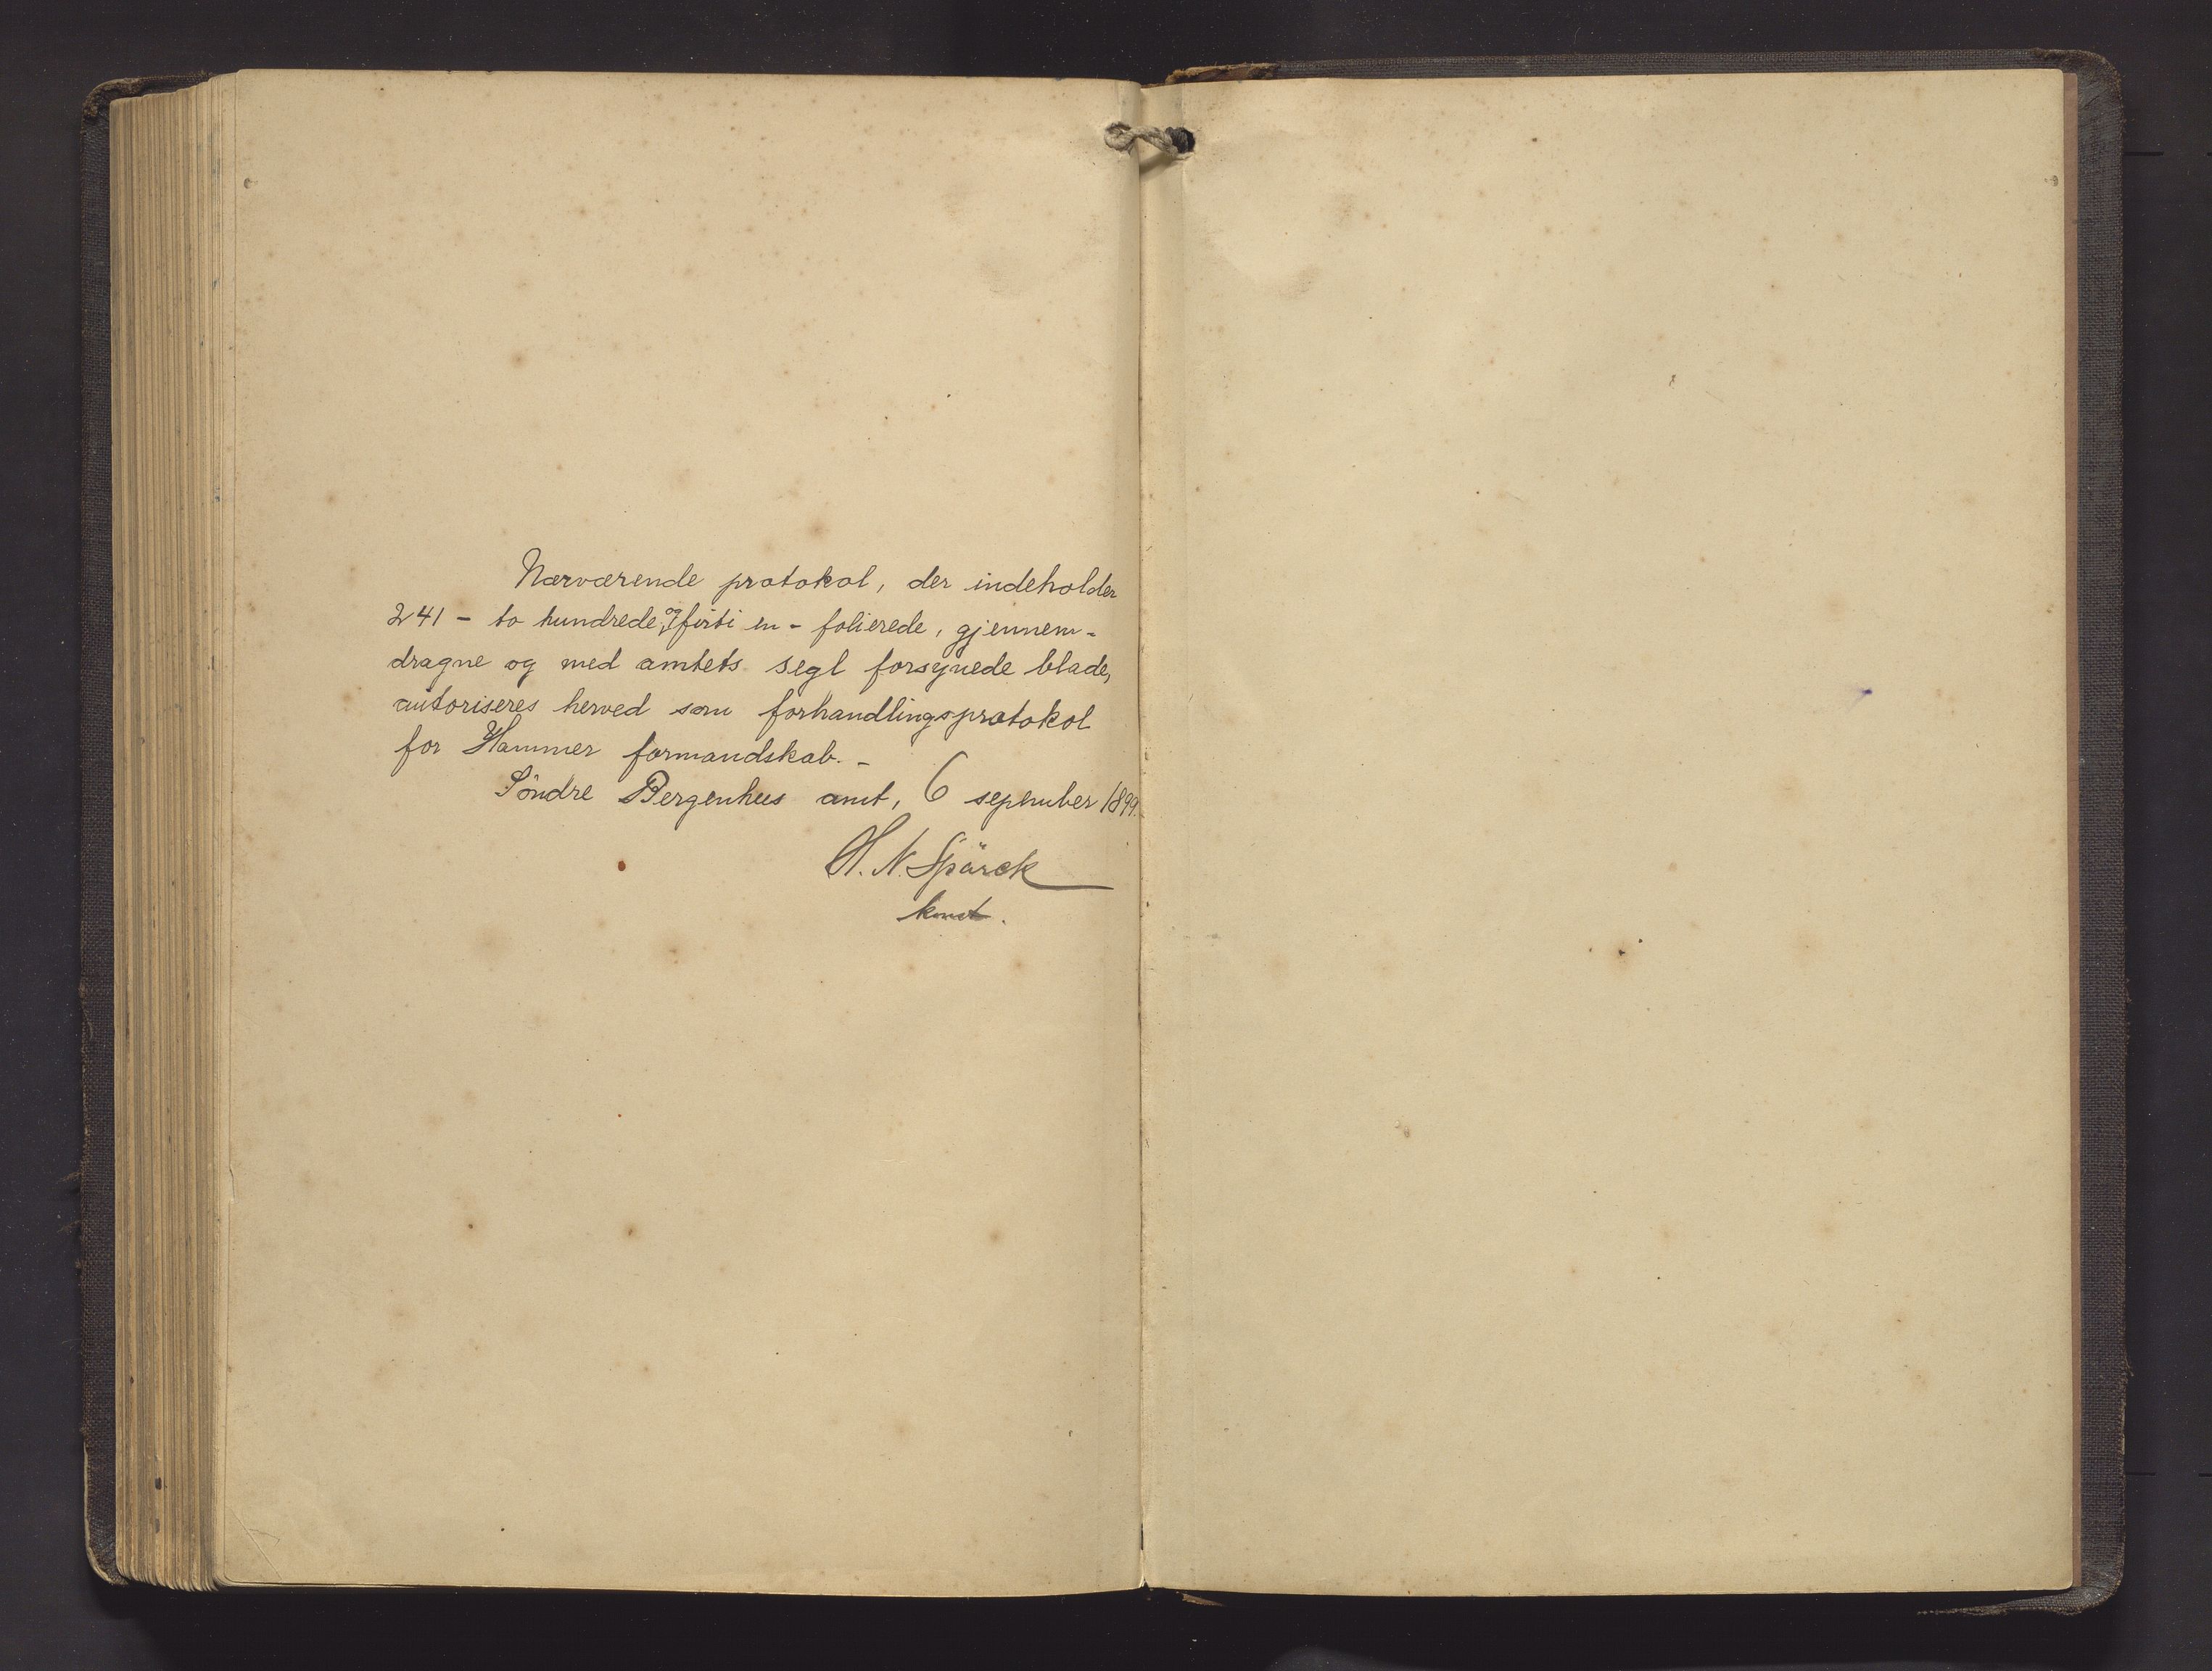 Nærværende protokol, der indeholder
241 - to hundrede og firti en - folierede, gjennem-
dragne og med amtets segl forsynede blade,
autoriseres herved som forhandlingsprotokol
for Hammer formandskab. -
Söndre Bergenhus amt, 6 sepember 1899.
H. N. Spärck
konst.